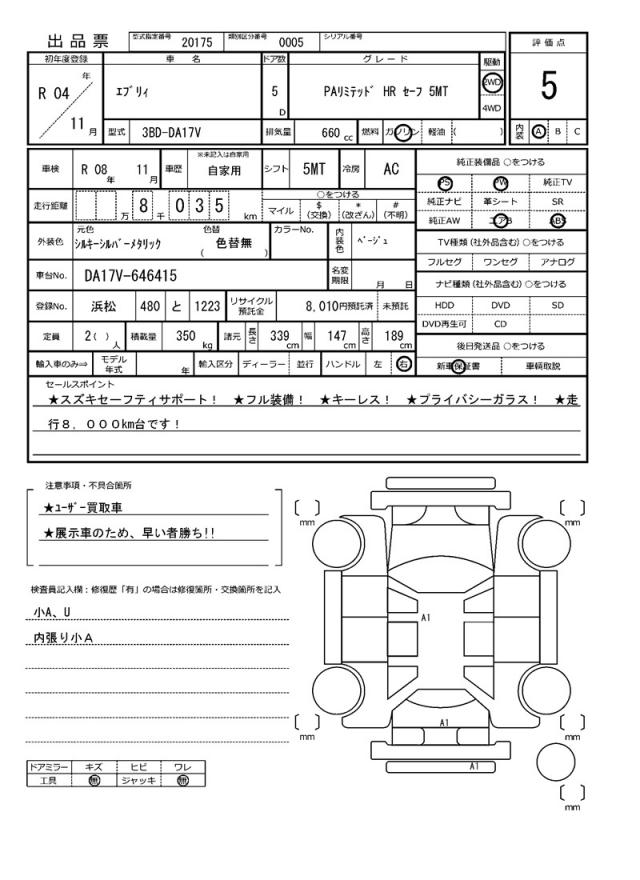 出品票 型式指定番号 20175 類別区分番号 0005 シリアル番号
評価点
5
内装 A B C
初年度登録 車名 ドア数 グレード 駆動
R 04 年 11 月 エブリィ 5 D PAリミテッド HR セーフ 5MT 2WD 4WD
型式 3BD-DA17V 排気量 660 cc 燃料 ガソリン 軽油 ( )
車検 R 08 年 11 月 車歴 ※未記入は自家用 自家用 シフト 5MT 冷房 AC
走行距離 万 8 千 0 3 5 km ○をつける
マイル $ (交換) * (改ざん) # (不明)
外装色 元色 シルキーシルバーメタリック 色替 ( 色替無 ) カラーNo. 内装色 ベージュ
車台No. DA17V-646415 名変期限 月 日
登録No. 浜松 480 と 1223 リサイクル預託金 8,010円預託済 未預託
定員 2( ) 人 積載量 350 kg 諸元 長さ 339 cm 幅 147 cm 高さ 189 cm
輸入車のみ⇒ モデル年式 年 輸入区分 ディーラー 並行 ハンドル 左 右
純正装備品 ○をつける
PS PW 純正TV
純正ナビ 革シート SR
純正AW エアB ABS
TV種類 (社外品含む) ○をつける
フルセグ ワンセグ アナログ
ナビ種類 (社外品含む) ○をつける
HDD DVD SD
DVD再生可 CD
後日発送品 ○をつける
新車保証書 車輌取説
セールスポイント
★スズキセーフティサポート! ★フル装備! ★キーレス! ★プライバシーガラス! ★走
行8.000km台です!
注意事項・不具合箇所
★ユーザー買取車
★展示車のため、早い者勝ち!!
検査員記入欄:修復歴「有」の場合は修復箇所・交換箇所を記入
小A、U
内張り小A
ドアミラー キズ ヒビ ワレ
工具 無 ジャッキ 無
[ ] mm
[ ] mm
A1
A1
A1
[ ] mm
[ ] mm
[ ] mm